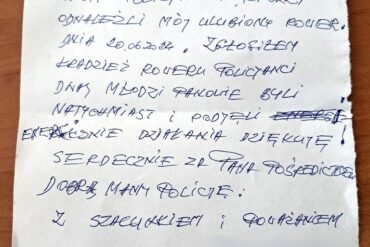 ODNALEŹLI MÓJ ULUBIONY ROWER.
DNIA 20.06.2024. ZGŁOSIŁEM
KRADZIEŻ ROWERU POLICJANCI
DWAJ MŁODZI PANOWIE BYLI
NATYCHMIAST I PODJELI
ENERGICZNIE DZIAŁANIA DZIĘKUJĘ!
SERDECZNIE ZA PANA POŚREDICTWEM
DOBRĄ MAMY POLICJĘ.
Z SZACUNKIEM I POWAŻANIEM